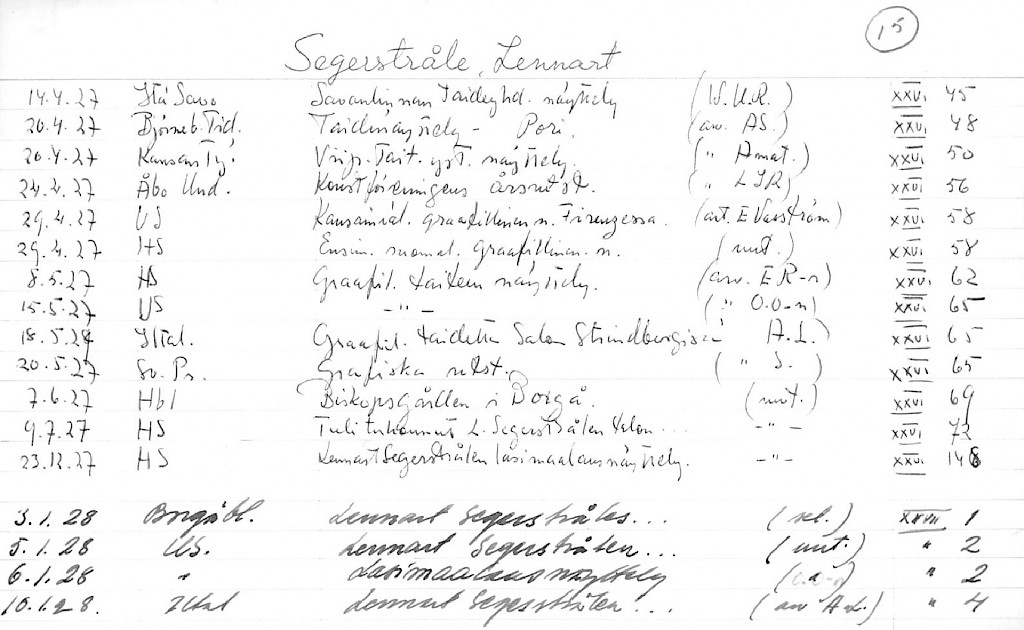 15
Segerstråle, Lennart
14.4.27 Itä Savo Savonlinnan Taideyhd. näyttely (W.U.R.) XXVI 45
20.4.27 Björneb. Tid. Taidenäyttely - Pori. (arv. AS.) XXVI 48
20.4.27 Kansan Ty. Viip. Tait. yst. näyttely. (" Amat.) XXVI 50
24.4.27 Åbo Und. Konstföreningens årsutst. (" LSR) XXVI 56
29.4.27 US Kansainväl. graafillinen n. Firenzessa. (art. E Vasström) XXVI 58
29.4.27 HS Ensim. suomal. Graafillinen n. (uut.) XXVI 58
8.5.27 HS Graafil. taiteen näyttely. (arv. E R-n) XXVI 62
15.5.27 US - " - (" O.O-n) XXVI 65
18.5.27 Iltal. Graafil. taidetta Salon Strindbergissä A.L.) XXVI 65
20.5.27 Sv. Pr. Grafiska utst. (" S.) XXVI 65
7.6.27 Hbl Biskopsgården i Borgå. (uut.) XXVI 69
9.7.27 HS Tuli tuhonnut L. Segerstrålen talon ... - " - XXVI 72
23.12.27 HS Lennart Segerstrålen lasimaalausnäyttely. - " - XXVI 148
3.1.28 Borgåbl. Lennart Segerstråles... (sel.) XXVII 1
5.1.28 US. Lennart Segerstrålen... (uut.) " 2
6.1.28 " Lasimaalausnäyttely " 2
10.1.28. Iltal Lennart Segerstrålen... (arv A.L.) " 4